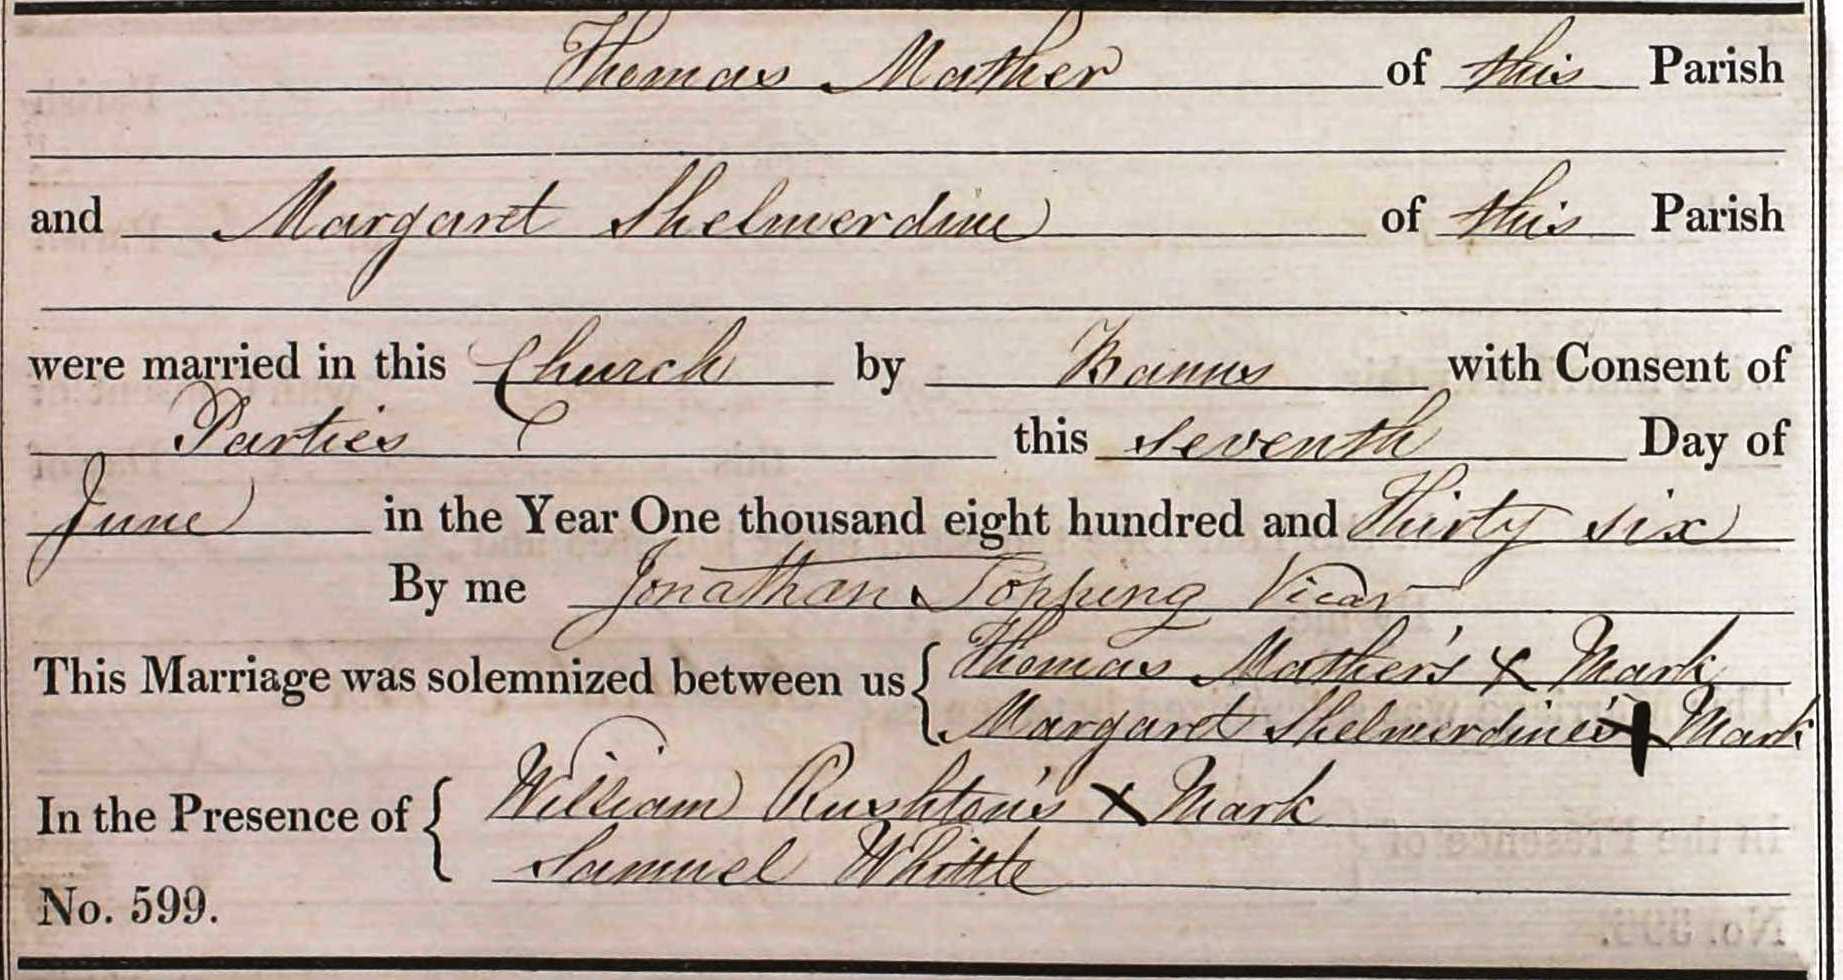 Thomas Mather of this Parish
and Margaret Shelmerdine of this Parish
were married in this Church by Banns with Consent of
Parties this seventh Day of
June in the Year One thousand eight hundred and Thirty six
By me Jonathan Topping Vicar
This Marriage was solemnized between us { Thomas Mather's X Mark
Margaret Shelmerdine's X Mark
In the Presence of { William Rushton's X Mark
Samuel Whittle
No. 599.